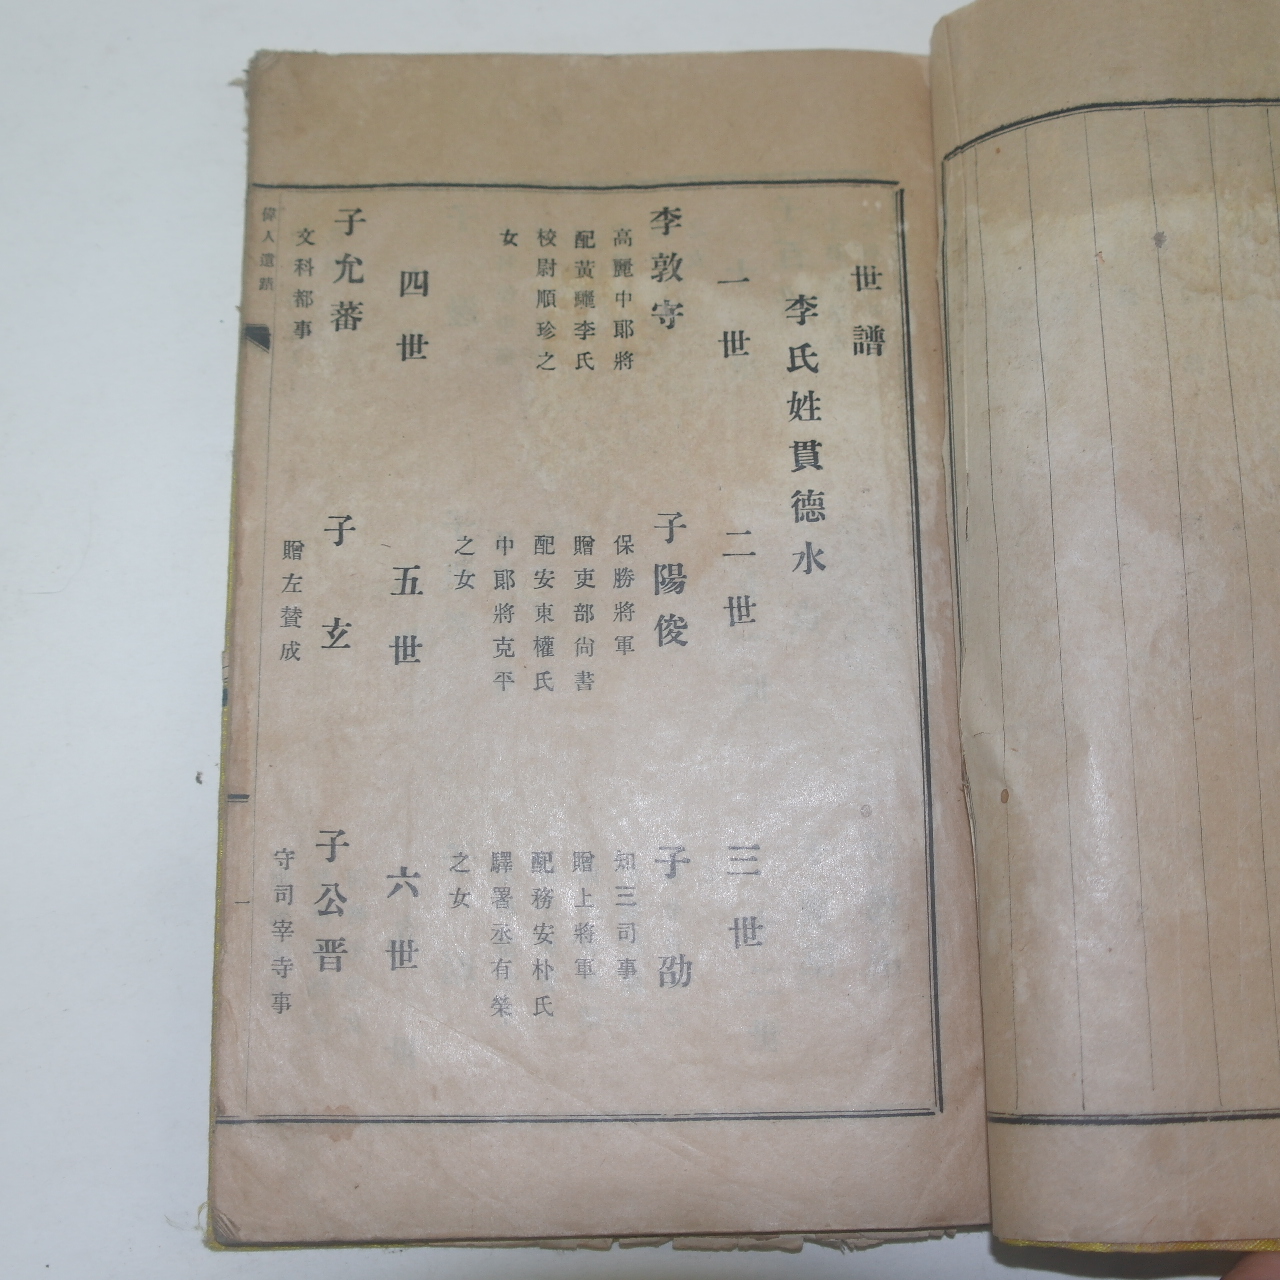 世譜
李氏姓貫德水
一世
二世
三世
李敦守
高麗中郞將
配黃驪李氏
校尉順珍之
女
子陽俊
保勝將軍
贈吏部尙書
配安東權氏
中郞將克平
之女
子劭
知三司事
贈上將軍
配務安朴氏
驛署丞有榮
之女
四世
五世
六世
子允蕃
文科都事
子玄
贈左賛成
子公晋
守司宰寺事
偉人遺蹟
一